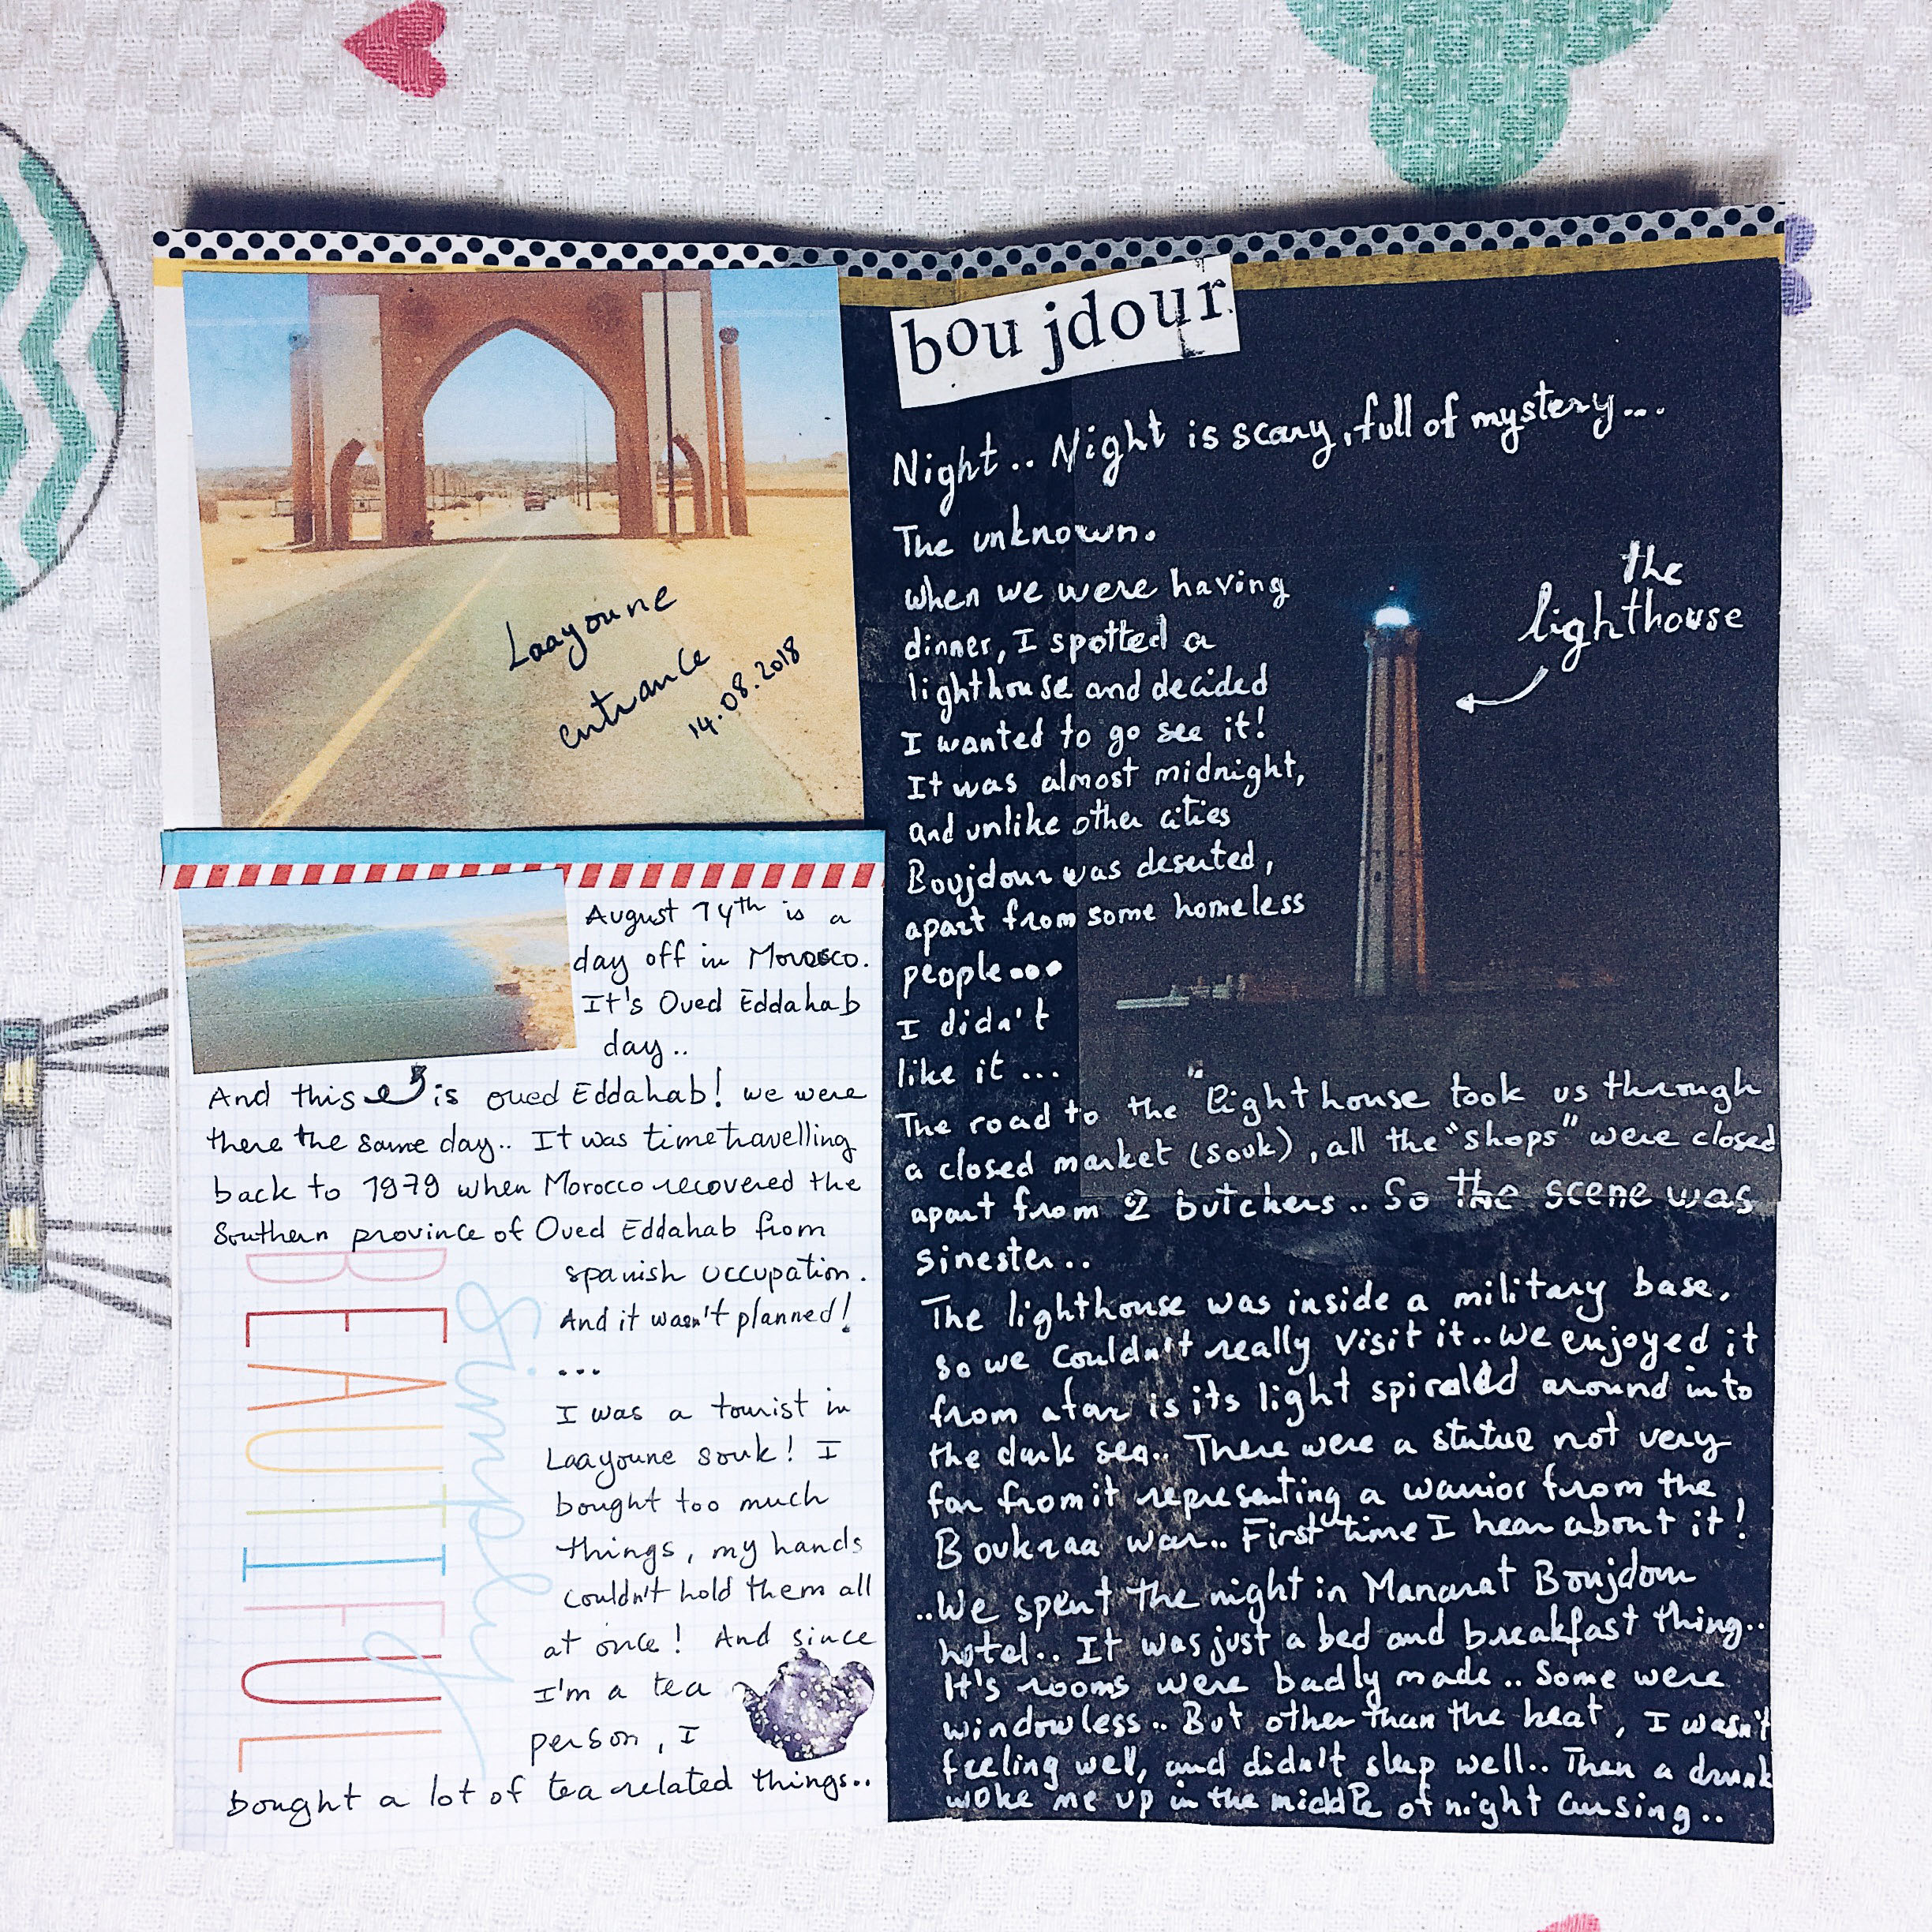 Laayoune
entrance
14.08.2018
August 14th is a
day off in Morocco.
It's Oued Eddahab
day..
And this is oued Eddahab! we were
there the same day.. It was timetravelling
back to 1979 when Morocco recovered the
Southern province of Oued Eddahab from
spanish occupation.
And it wasn't planned!
...
I was a tourist in
Laayoune souk! I
bought too much
things, my hands
couldn't hold them all
at once! And since
I'm a tea
person, I
bought a lot of tea related things..
simply
BEAUTIFUL
boujdour
Night.. Night is scary, full of mystery...
The unknown.
when we were having
dinner, I spotted a
lighthouse and decided
I wanted to go see it!
It was almost midnight,
and unlike other cities
Boujdour was deserted,
apart from some homeless
people...
I didn't
like it ...
The road to the "lighthouse took us through
a closed market (souk), all the "shops" were closed
apart from 2 butchers.. So the scene was
sinester..
The lighthouse was inside a military base,
so we couldn't really visit it.. we enjoyed it
from afar is its light spiraled around into
the dark sea.. There were a statue not very
far from it representing a warrior from the
Boukraa war.. First time I hear about it!
..We spent the night in Manarat Boujdour
hotel.. It was just a bed and breakfast thing..
It's rooms were badly made.. Some were
windowless.. But other than the heat, I wasn't
feeling well, and didn't sleep well.. Then a drunk
woke me up in the middle of night cursing..
the
lighthouse